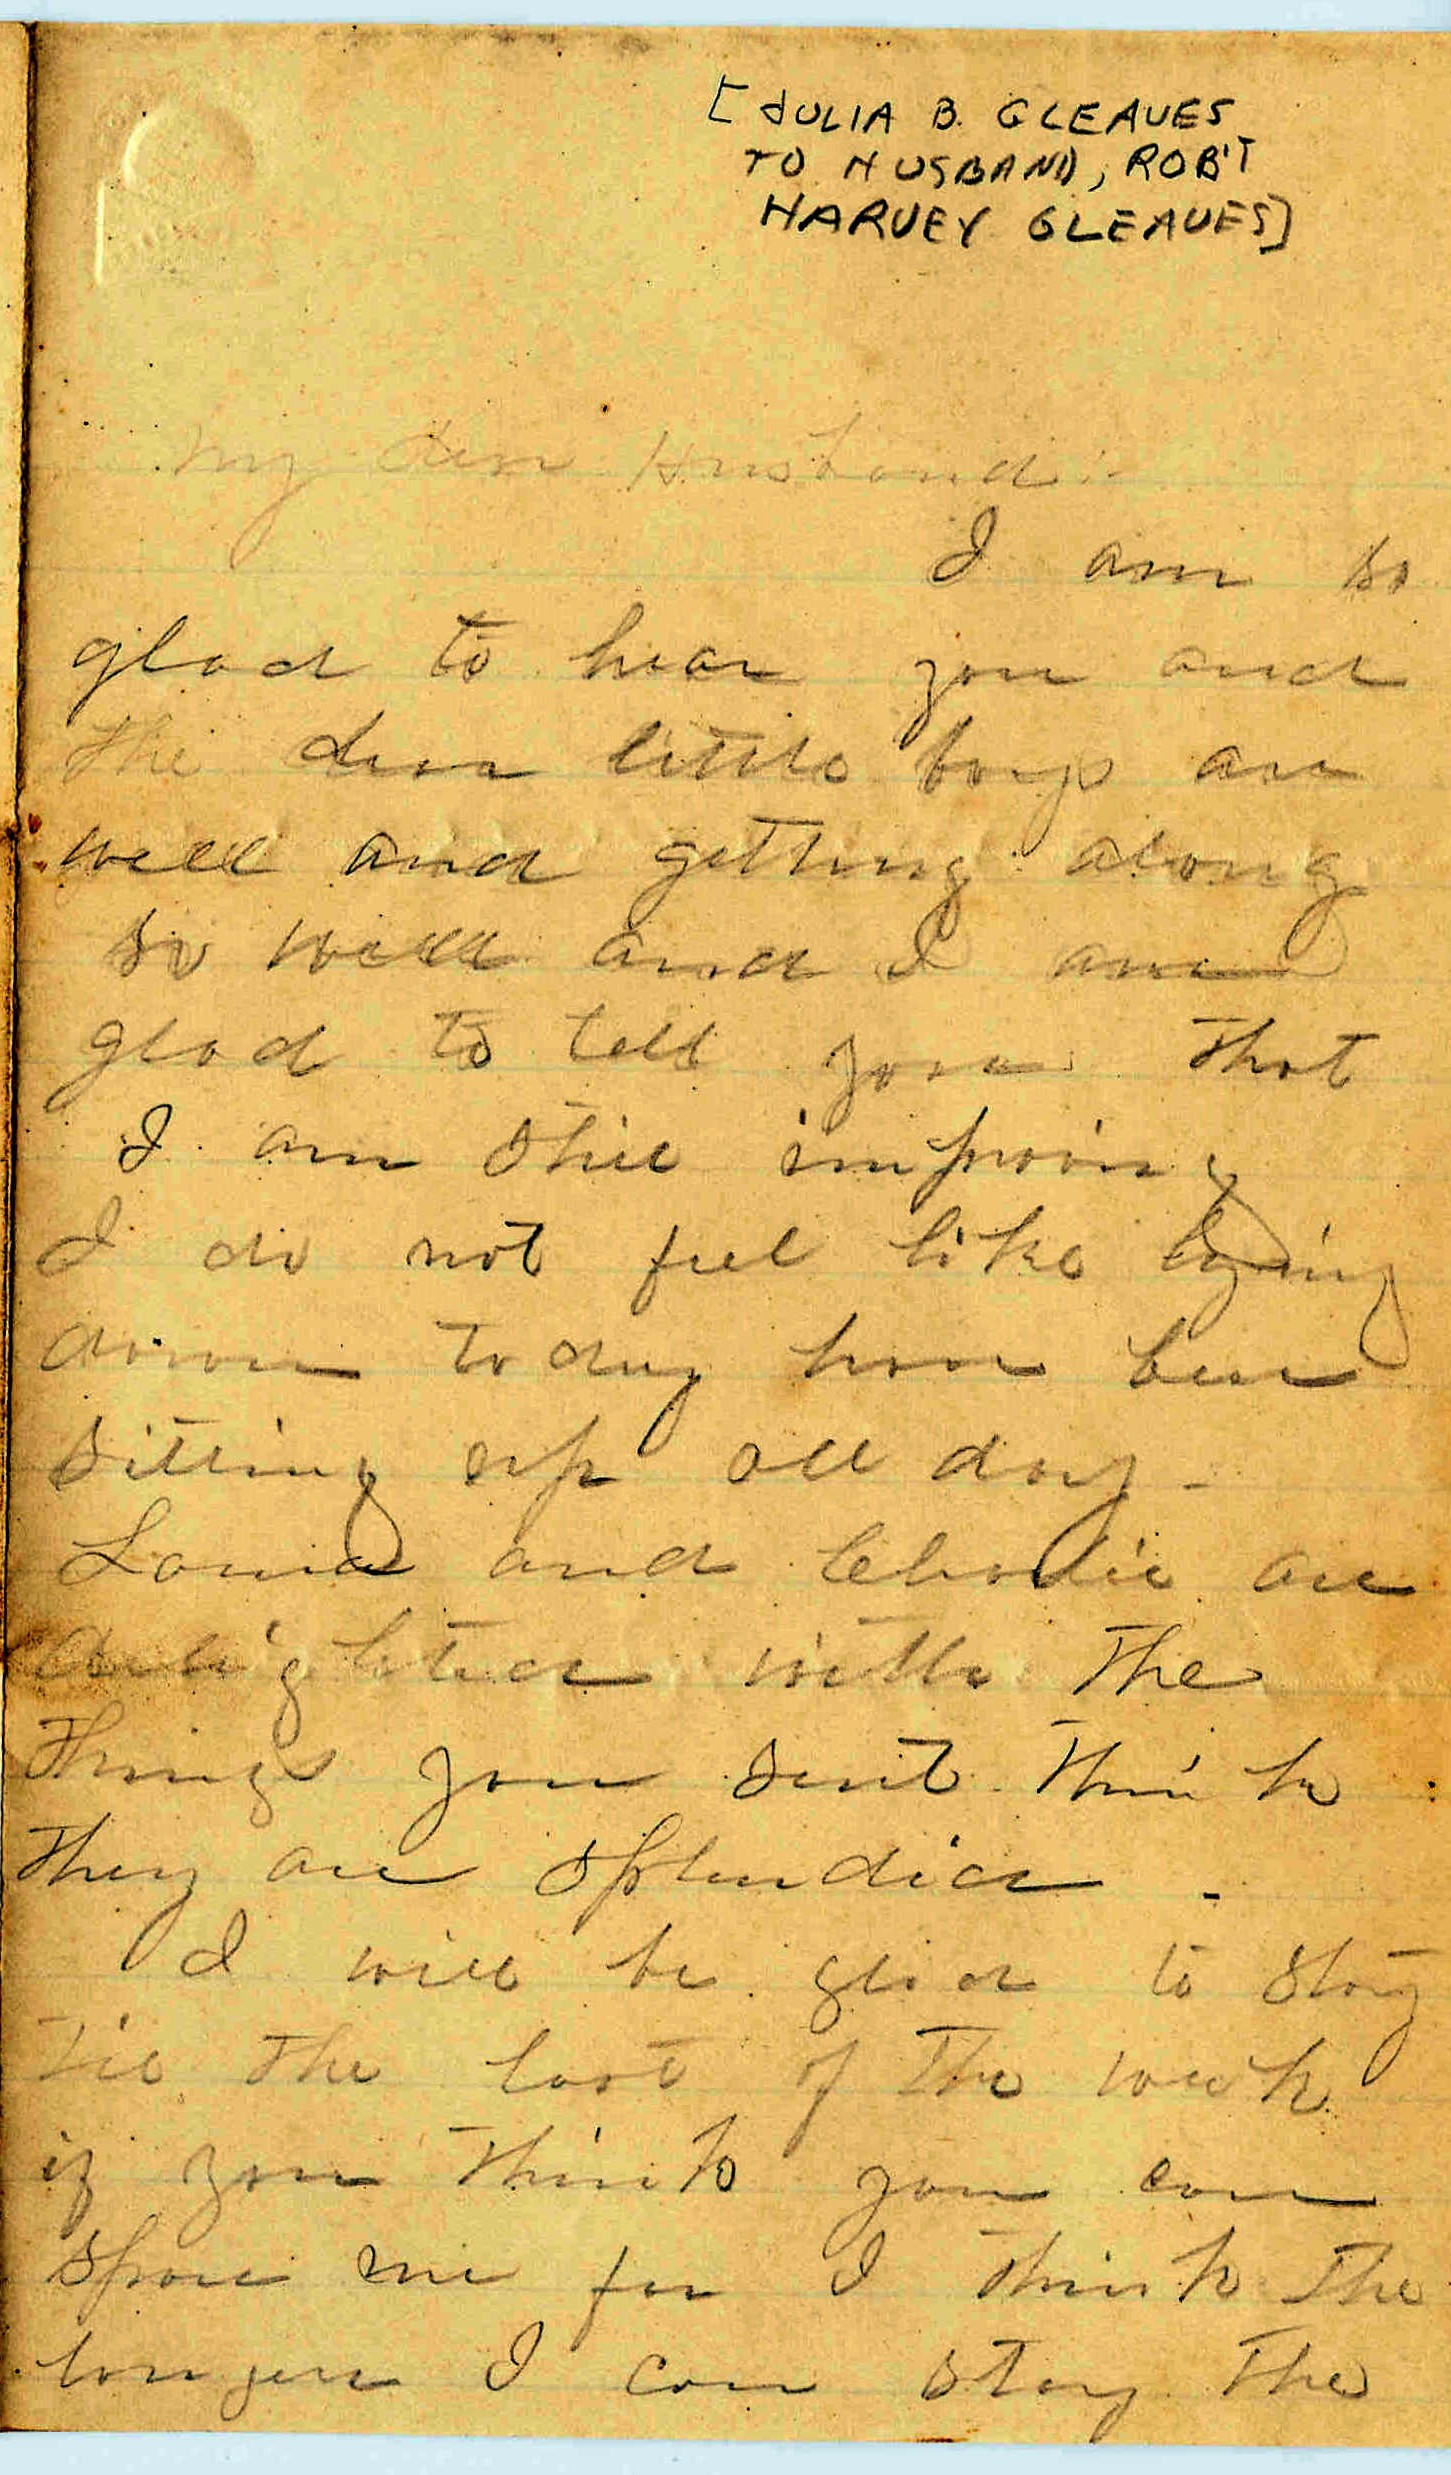 [JULIA B. GLEAVES
TO HUSBAND, ROB'T
HARVEY GLEAVES]
My dear Husband:-
I am so
glad to hear you and
the dear little boys are
well and getting along
so well and I am
glad to tell you that
I am still improving
I do not feel like lying
down today have been
sitting up all day -
and are
delighted with the
things you sent think
they are splendid.
I will be glad to stay
till the last of the week
if you think you can
spare me for I think the
longer I can stay the